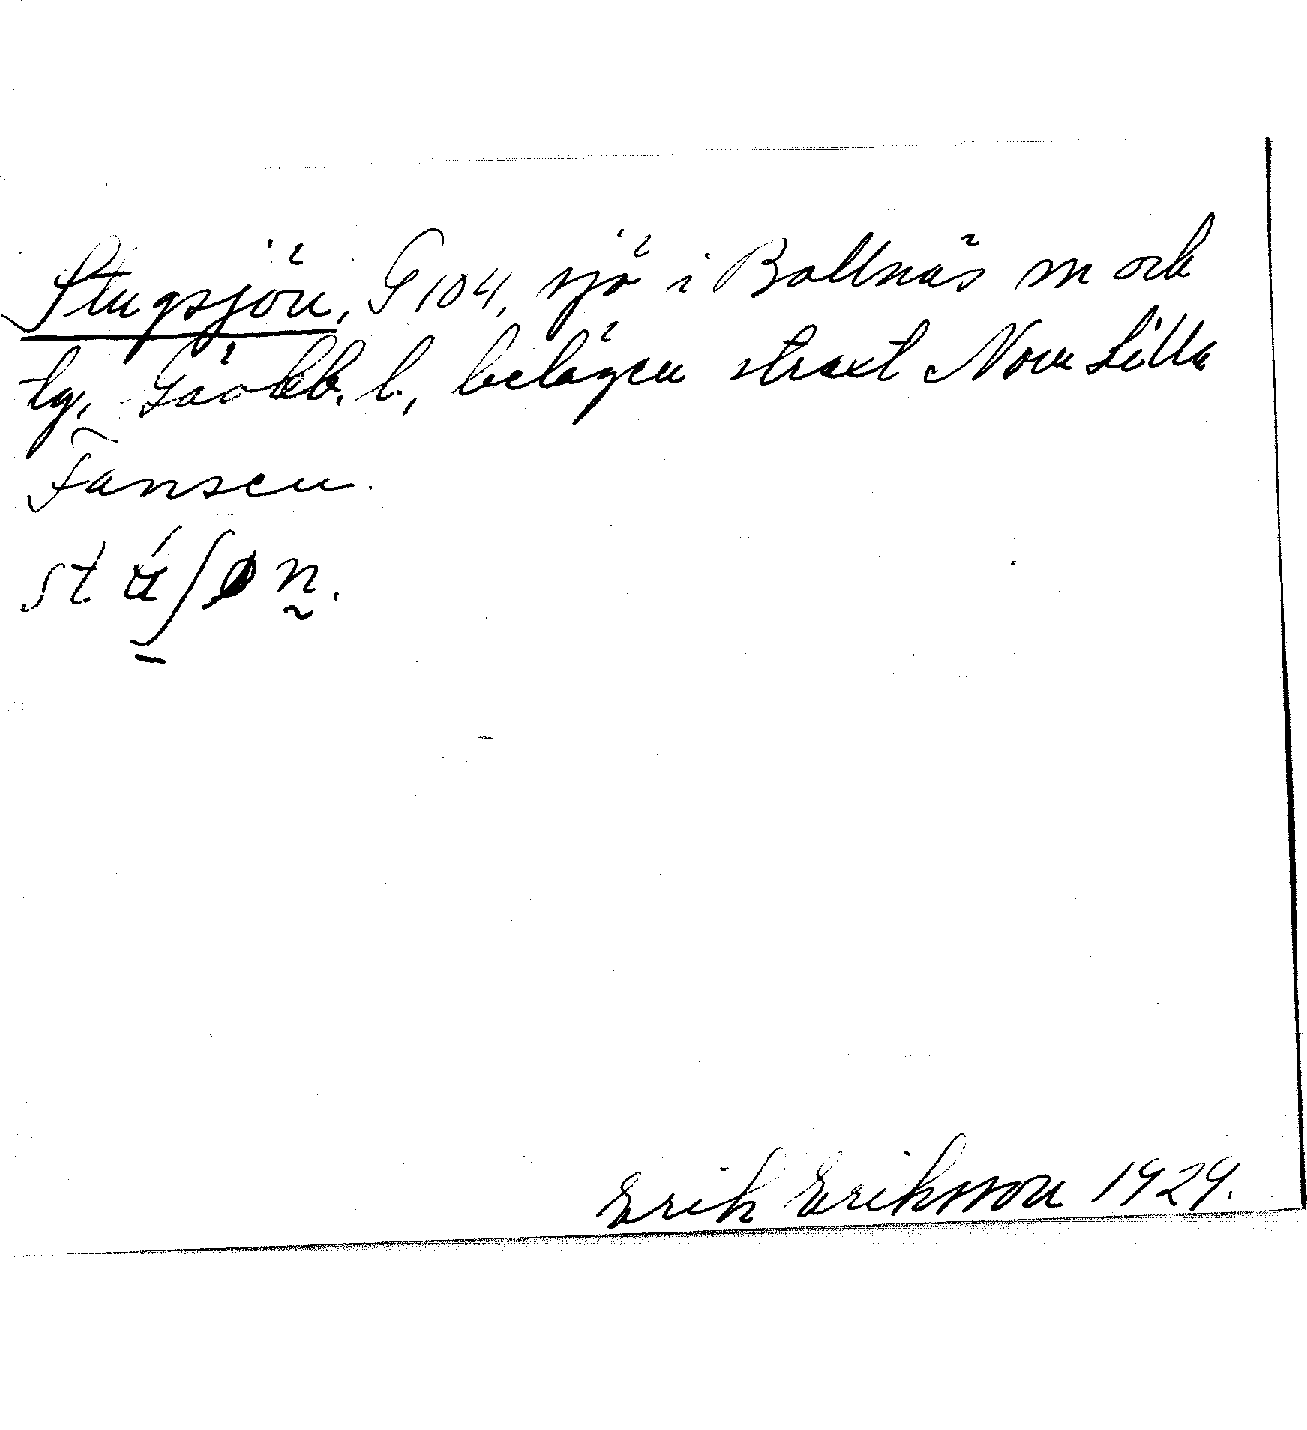 Stugsjön, G 104, sjö i Bollnäs sn och
tg, Gävleb. l., belägen straxt N om Lilla
Fansen.
Erik Eriksson 1929.